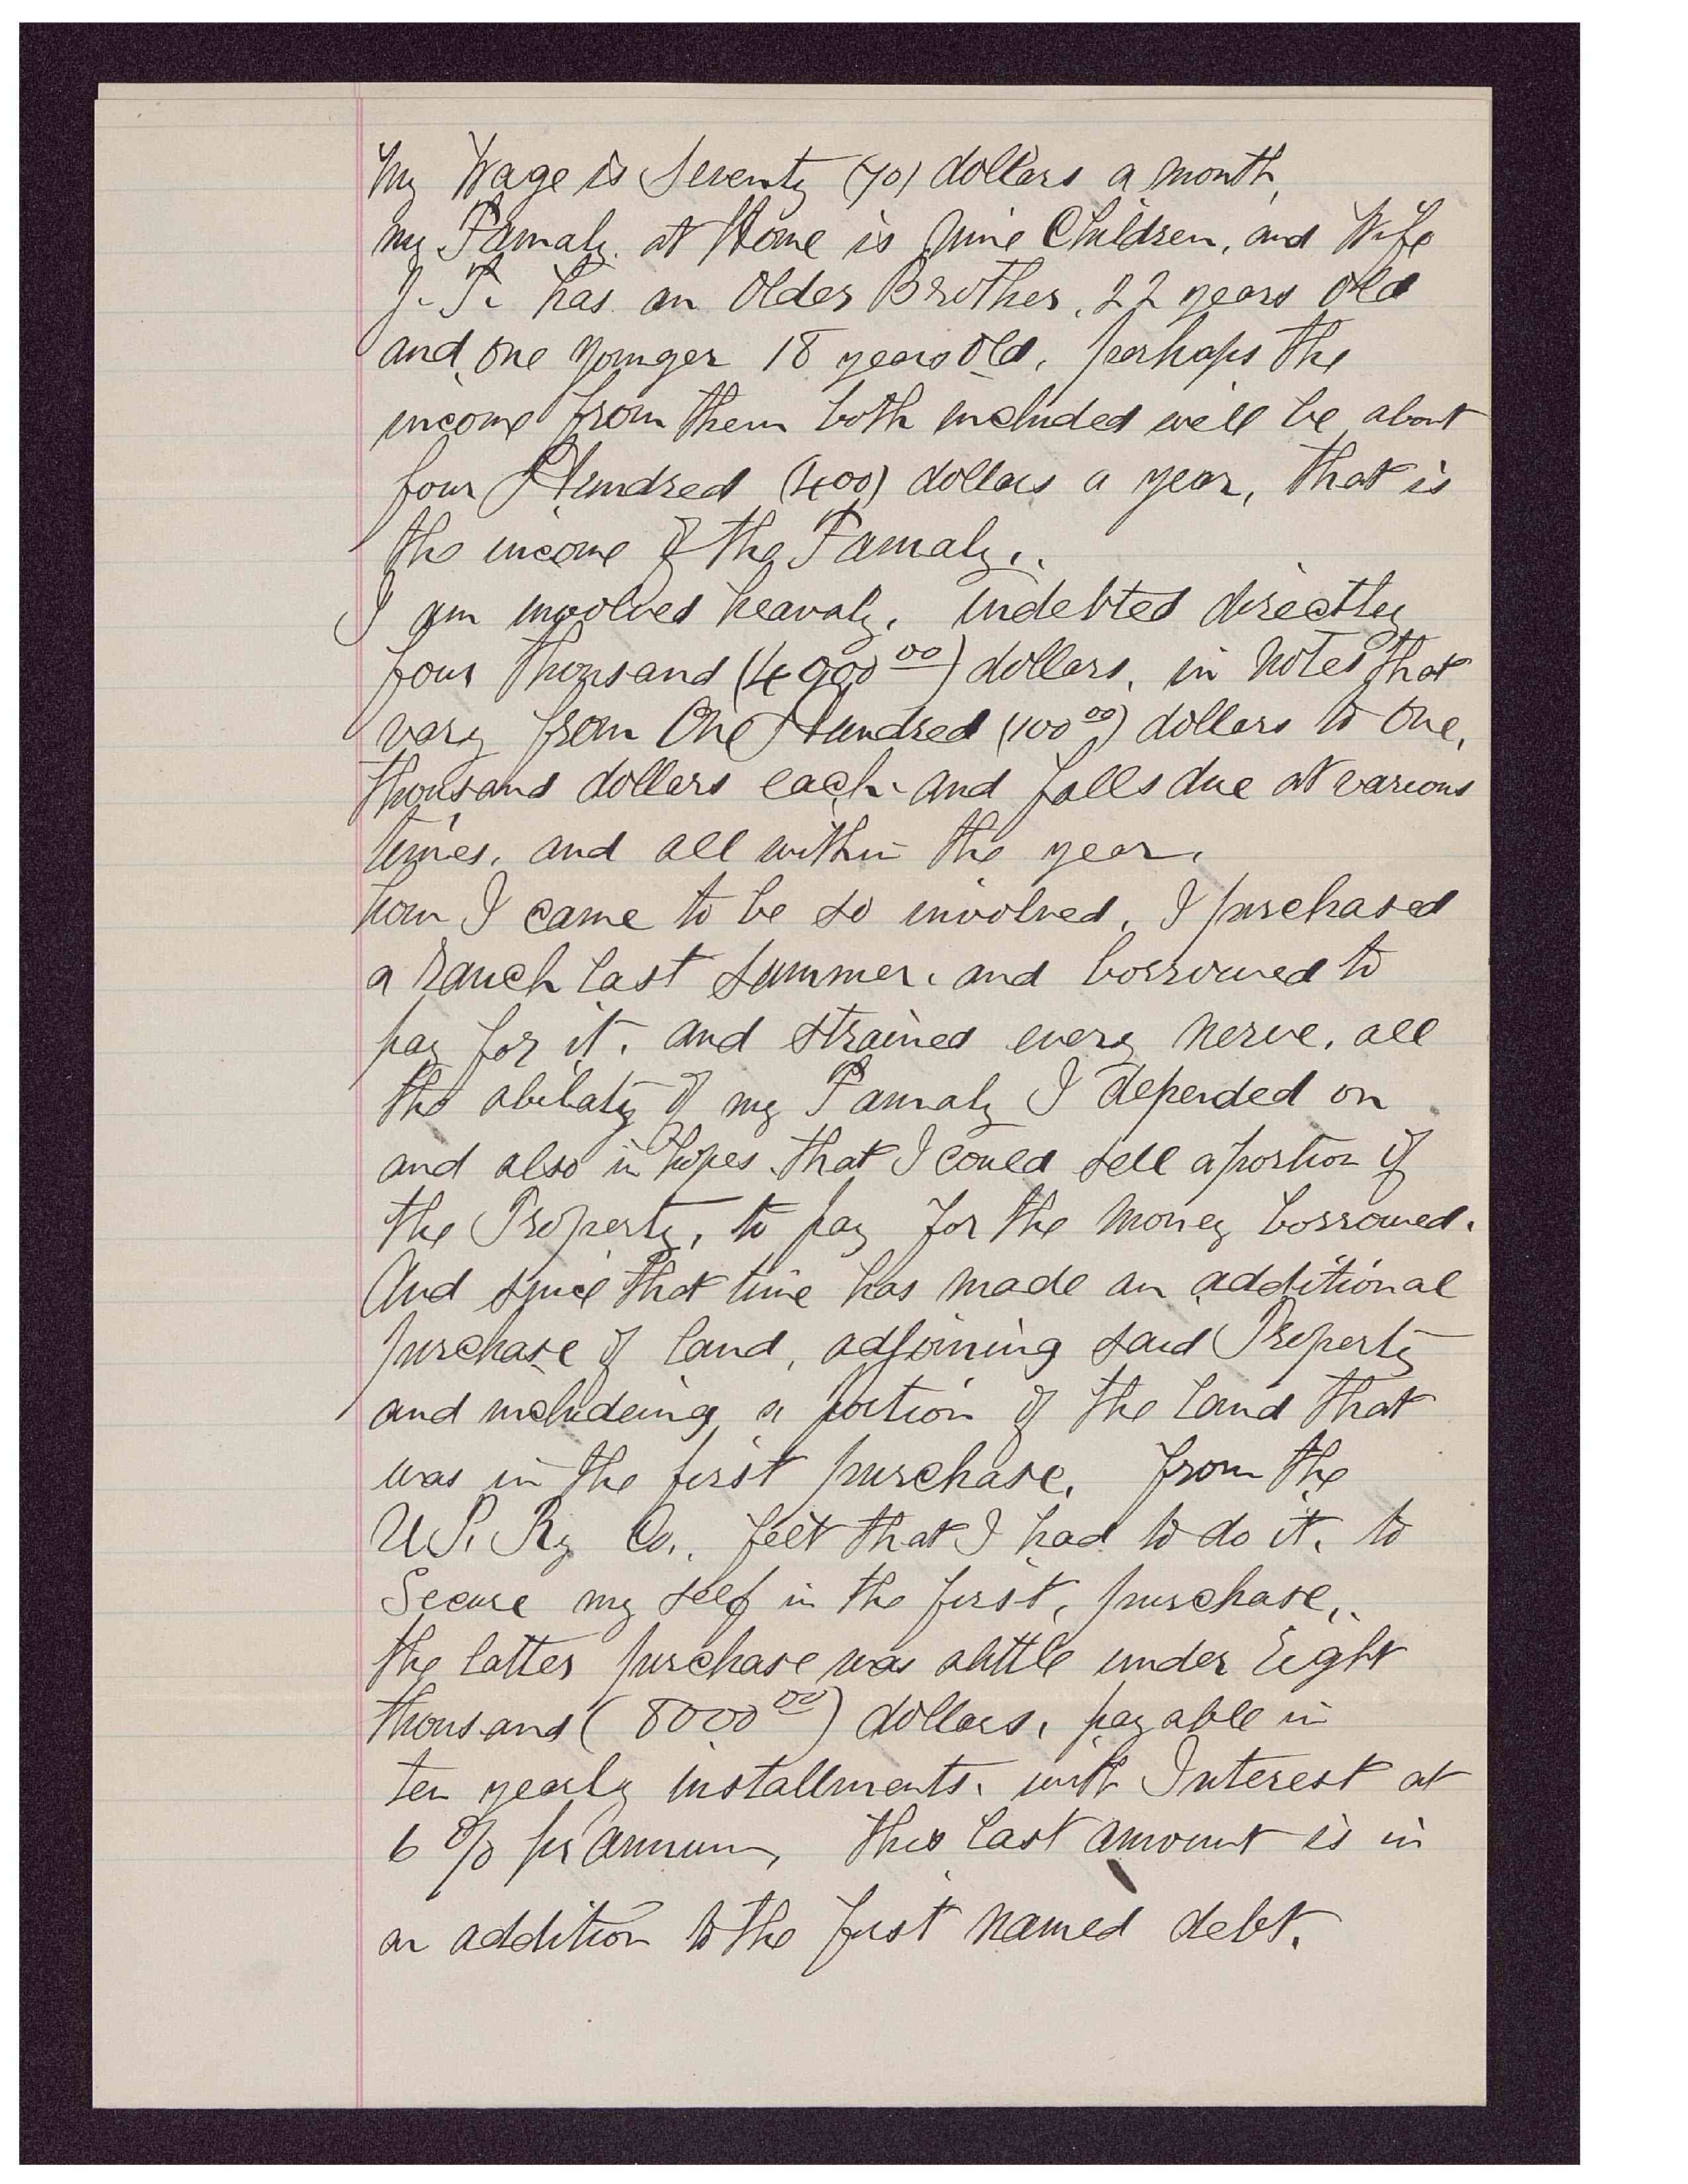 My Wage is Seventy (70) dollars a month,
my Famaly. at Home is Nine Children, and Wife
J. T. has an Older Brother, 22 years old
and, one younger 18 years old, perhaps the
income from them both included will be about
four Hundred (400) dollars a year, that is
the income of the Famaly,.
I am involved heavaly, indebted directley
four Thousand (4000 00) dollars, in Notes that
vary from One Hundred (100 00) dollars to One,
thousand dollars each. and falls due at various
times, and all within the year,
how I came to be so involved, I purchased
a Ranch last Summer, and borrowed to
pay for it, and strained every nerve, all
the abilaty of my Famaly I depended on
and also in hopes that I could sell a portion of
the Property, to pay for the Money borrowed.
And since that time has made an additional
purchase of land, adjoining said Property
and includeing a portion of the land that
was in the first purchase, from the
U.P. Ry Co., felt that I had to do it, to
Secure my self in the first, purchase,.
the latter purchase was alittle under Eight
thousand (8000 00) dollars, payable in
ten yearly installments, with Interest at
6 % pr Annum, this last amount is in
an addition to the first named debt.